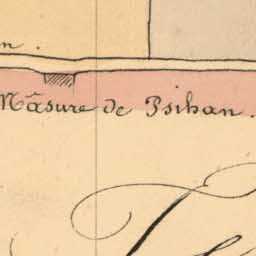 n.
Mâsure de Psihan.